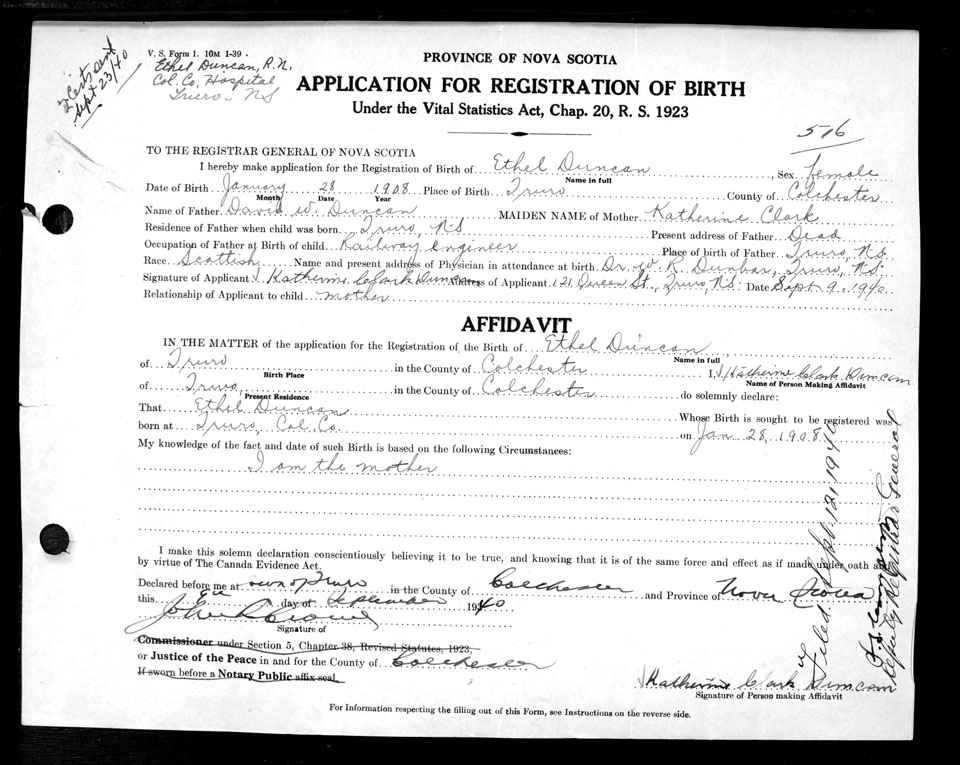 2 Certs sent
Sept 23/40
V. S. Form 1. 10M 1-39.
Ethel Duncan, R.N.
Col. Co. Hospital
Truro - NS
PROVINCE OF NOVA SCOTIA
APPLICATION FOR REGISTRATION OF BIRTH
Under the Vital Statistics Act, Chap. 20, R. S. 1923
516
TO THE REGISTRAR GENERAL OF NOVA SCOTIA
I hereby make application for the Registration of Birth of Ethel Duncan, Sex female
Name in full
Date of Birth January 28 1908 Place of Birth Truro County of Colchester
Month Date Year
Name of Father David W. Duncan MAIDEN NAME of Mother Katherine Clark
Residence of Father when child was born Truro, NS Present address of Father Dead
Occupation of Father at Birth of child Railway engineer Place of birth of Father Truro, NS.
Race Scottish Name and present address of Physician in attendance at birth Dr. W. R. Dunbar, Truro, NS.
Signature of Applicant Katherine Clark Duncan Address of Applicant 121 Queen St., Truro, NS. Date Sept 9, 1940
Relationship of Applicant to child mother
AFFIDAVIT
IN THE MATTER of the application for the Registration of the Birth of Ethel Duncan
Name in full
of Truro in the County of Colchester I, Katherine Clark Duncan
Birth Place Name of Person Making Affidavit
of Truro, in the County of Colchester do solemnly declare:
Present Residence
That Ethel Duncan Whose Birth is sought to be registered was
born at Truro, Col. Co. on Jan 28, 1908.
My knowledge of the fact and date of such Birth is based on the following Circumstances:
I am the mother
I make this solemn declaration conscientiously believing it to be true, and knowing that it is of the same force and effect as if made under oath and
by virtue of The Canada Evidence Act.
Declared before me at Town of Truro in the County of Colchester and Province of Nova Scotia
this 9th day of September 1940
Signature of
Commissioner under Section 5, Chapter 38, Revised Statutes, 1923,
or Justice of the Peace in and for the County of Colchester
If sworn before a Notary Public affix seal.
Katherine Clark Duncan
Signature of Person making Affidavit
For Information respecting the filling out of this Form, see Instructions on the reverse side.
Filed Sept. 12, 1940
Deputy Registrar General